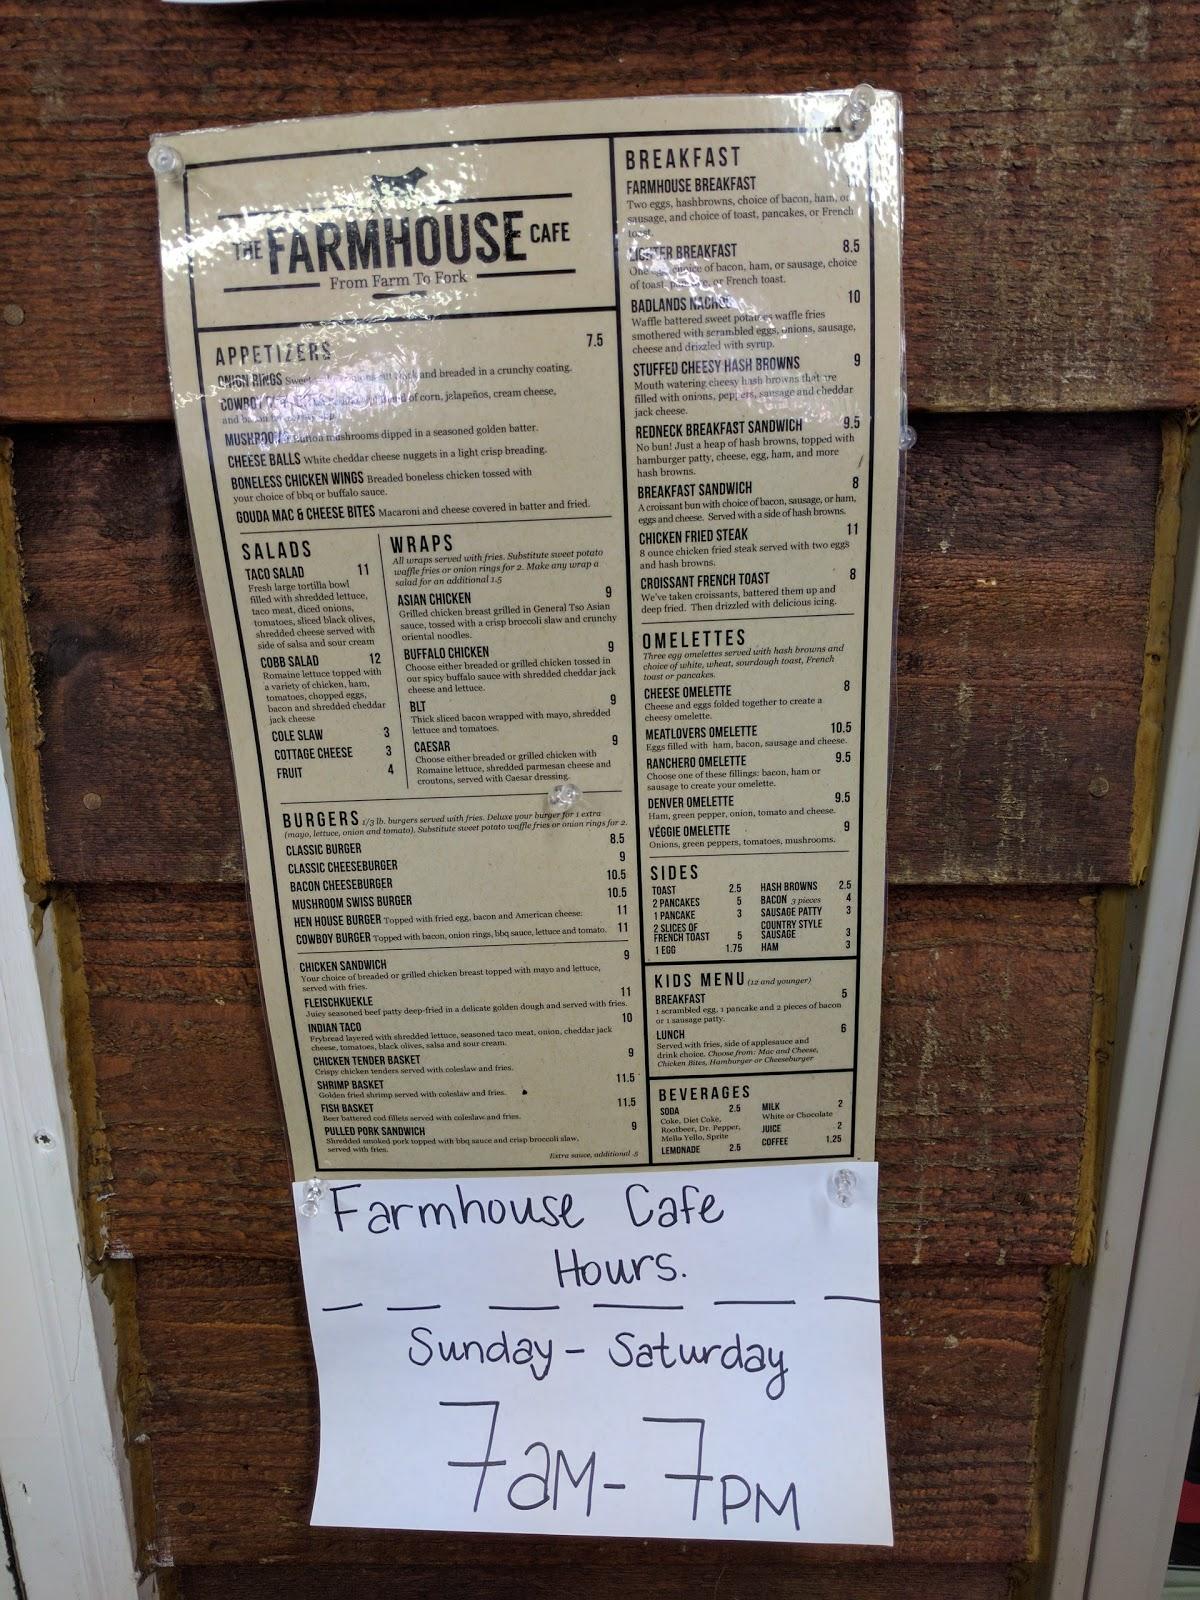 THE FARMHOUSE CAFE
From Farm To Fork
APPETIZERS 7.5
ONION RINGS Sweet and breaded in a crunchy coating.
COWBOY of corn, jalapeños, cream cheese,
and
MUSHROOMS mushrooms dipped in a seasoned golden batter.
CHEESE BALLS White cheddar cheese nuggets in a light crisp breading.
BONELESS CHICKEN WINGS Breaded boneless chicken tossed with
your choice of bbq or buffalo sauce.
GOUDA MAC & CHEESE BITES Macaroni and cheese covered in batter and fried.
SALADS
TACO SALAD 11
Fresh large tortilla bowl
filled with shredded lettuce,
taco meat, diced onions,
tomatoes, sliced black olives,
shredded cheese served with
side of salsa and sour cream
COBB SALAD 12
Romaine lettuce topped with
a variety of chicken, ham,
tomatoes, chopped eggs,
bacon and shredded cheddar
jack cheese
COLE SLAW 3
COTTAGE CHEESE 3
FRUIT 4
WRAPS
All wraps served with fries. Substitute sweet potato
waffle fries or onion rings for 2. Make any wrap a
salad for an additional 1.5
ASIAN CHICKEN 9
Grilled chicken breast grilled in General Tso Asian
sauce, tossed with a crisp broccoli slaw and crunchy
oriental noodles.
BUFFALO CHICKEN 9
Choose either breaded or grilled chicken tossed in
our spicy buffalo sauce with shredded cheddar jack
cheese and lettuce.
BLT 9
Thick sliced bacon wrapped with mayo, shredded
lettuce and tomatoes.
CAESAR 9
Choose either breaded or grilled chicken with
Romaine lettuce, shredded parmesan cheese and
croutons, served with Caesar dressing.
BURGERS 1/3 lb. burgers served with fries. Deluxe your burger for 1 extra
(mayo, lettuce, onion and tomato). Substitute sweet potato waffle fries or onion rings for 2.
CLASSIC BURGER 8.5
CLASSIC CHEESEBURGER 9
BACON CHEESEBURGER 10.5
MUSHROOM SWISS BURGER 10.5
HEN HOUSE BURGER Topped with fried egg, bacon and American cheese. 11
COWBOY BURGER Topped with bacon, onion rings, bbq sauce, lettuce and tomato. 11
CHICKEN SANDWICH 9
Your choice of breaded or grilled chicken breast topped with mayo and lettuce,
served with fries.
FLEISCHKUEKLE 11
Juicy seasoned beef patty deep-fried in a delicate golden dough and served with fries.
INDIAN TACO 10
Frybread layered with shredded lettuce, seasoned taco meat, onion, cheddar jack
cheese, tomatoes, black olives, salsa and sour cream.
CHICKEN TENDER BASKET 9
Crispy chicken tenders served with coleslaw and fries.
SHRIMP BASKET 11.5
Golden fried shrimp served with coleslaw and fries.
FISH BASKET 11.5
Beer battered cod fillets served with coleslaw and fries.
PULLED PORK SANDWICH 9
Shredded smoked pork topped with bbq sauce and crisp broccoli slaw,
served with fries.
Extra sauce, additional .5
BREAKFAST
FARMHOUSE BREAKFAST
Two eggs, hashbrowns, choice of bacon, ham, or
sausage, and choice of toast, pancakes, or French
toast.
LIGHTER BREAKFAST 8.5
One egg, choice of bacon, ham, or sausage, choice
of toast, pancake, or French toast.
BADLANDS NACHOS 10
Waffle battered sweet potatoes waffle fries
smothered with scrambled eggs, onions, sausage,
cheese and drizzled with syrup.
STUFFED CHEESY HASH BROWNS 9
Mouth watering cheesy hash browns that are
filled with onions, peppers, sausage and cheddar
jack cheese.
REDNECK BREAKFAST SANDWICH 9.5
No bun! Just a heap of hash browns, topped with
hamburger patty, cheese, egg, ham, and more
hash browns.
BREAKFAST SANDWICH 8
A croissant bun with choice of bacon, sausage, or ham,
eggs and cheese. Served with a side of hash browns.
CHICKEN FRIED STEAK 11
8 ounce chicken fried steak served with two eggs
and hash browns.
CROISSANT FRENCH TOAST 8
We've taken croissants, battered them up and
deep fried. Then drizzled with delicious icing.
OMELETTES
Three egg omelettes served with hash browns and
choice of white, wheat, sourdough toast, French
toast or pancakes.
CHEESE OMELETTE 8
Cheese and eggs folded together to create a
cheesy omelette.
MEATLOVERS OMELETTE 10.5
Eggs filled with ham, bacon, sausage and cheese.
RANCHERO OMELETTE 9.5
Choose one of these fillings: bacon, ham or
sausage to create your omelette.
DENVER OMELETTE 9.5
Ham, green pepper, onion, tomato and cheese.
VEGGIE OMELETTE 9
Onions, green peppers, tomatoes, mushrooms.
SIDES
TOAST 2.5
2 PANCAKES 5
1 PANCAKE 3
2 SLICES OF
FRENCH TOAST 5
1 EGG 1.75
HASH BROWNS 2.5
BACON 3 pieces 4
SAUSAGE PATTY 3
COUNTRY STYLE
SAUSAGE 3
HAM 3
KIDS MENU (12 and younger)
BREAKFAST 5
1 scrambled egg, 1 pancake and 2 pieces of bacon
or 1 sausage patty.
LUNCH 6
Served with fries, side of applesauce and
drink choice. Choose from: Mac and Cheese,
Chicken Bites, Hamburger or Cheeseburger
BEVERAGES
SODA 2.5
Coke, Diet Coke,
Rootbeer, Dr. Pepper,
Mello Yello, Sprite
LEMONADE 2.5
MILK 2
White or Chocolate
JUICE 2
COFFEE 1.25
Farmhouse Cafe
Hours.
Sunday - Saturday
7AM - 7PM